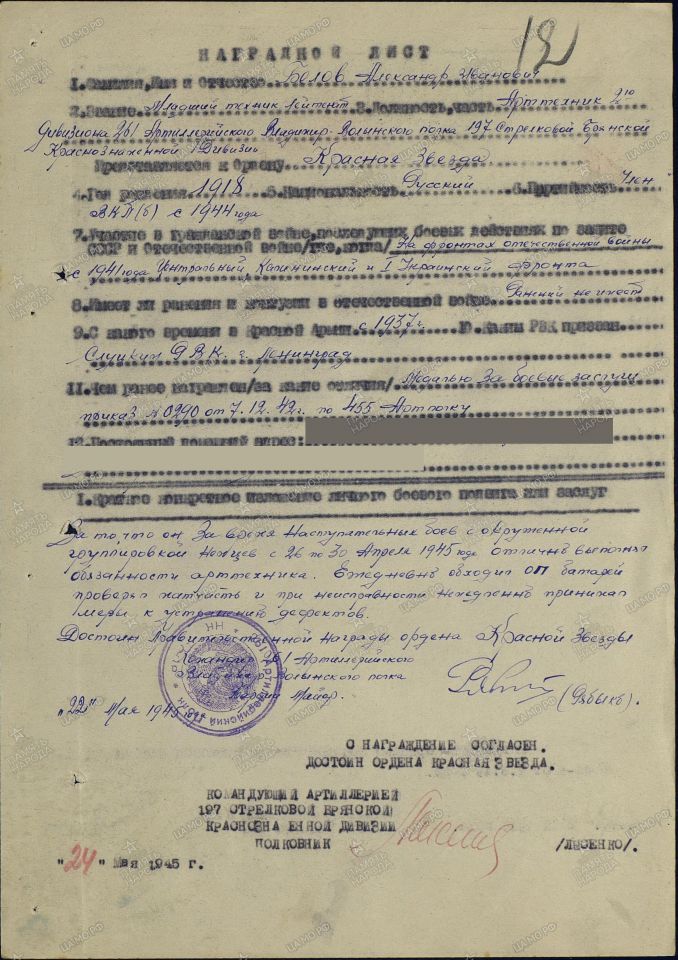 12
НАГРАДНОЙ ЛИСТ
1. Фамилия, Имя и Отчество Белов Александр Иванович
2. Звание Младший техник лейтент 3. Должность, часть Арттехник 2го
Дивизиона 261 Артиллерийского Владимир-Волынского полка 197 Стрелковой Брянской
Краснознаменной Дивизии
Представляется к Ордену Красная Звезда
4. Год рождения 1918 5. Национальность Русский 6. Партийность Член
ВКП(б) с 1944 года
7. Участие в гражданской войне, последующих боевых действиях по защите
СССР и Отечественной войне/где, когда/ На фронтах отечественной войны
с 1941 года Центральный Калининский и I Украинский фронта
8. Имеет ли ранения и контузии в отечественной войне Ранений не имеет
9. С какого времени в Красной Армии с 1937 г. 10. Каким РВК призван
Слуцким РВК г. Ленинград
11. Чем ранее награжден/за какие отличия/ Медалью За боевые заслуги
приказ №0290 от 7.12.42 г. по 455 Артполку
12. Постоянный домашний адрес:
I. Краткое конкретное изложение личного боевого подвига или заслуг
За то, что он За время Наступательных боев с окруженной
группировкой Немцев с 26 по 30 Апреля 1945 года отлично выполнял
обязанности арттехника. Ежедневно обходил ОП батарей
проверял матчасть и при неисправности немедленно принимал
меры к устранению дефектов.
Достоин Правительственной награды ордена Красной Звезды
261 Артиллерийского
Владимир-Волынского полка
Майор. (Рябыкъ).
"22" Мая 1945
С НАГРАЖДЕНИЕ СОГЛАСЕН.
ДОСТОИН ОРДЕНА КРАСНАЯ ЗВЕЗДА.
КОМАНДУЮЩИЙ АРТИЛЛЕРИЕЙ
197 СТРЕЛКОВОЙ БРЯНСКОЙ
КРАСНОЗНА ЕННОЙ ДИВИЗИИ
ПОЛКОВНИК /ЛЫСЕНКО/.
"24" Мая 1945 г.
ПАМЯТЬ НАРОДА
ЦАМО.РФ